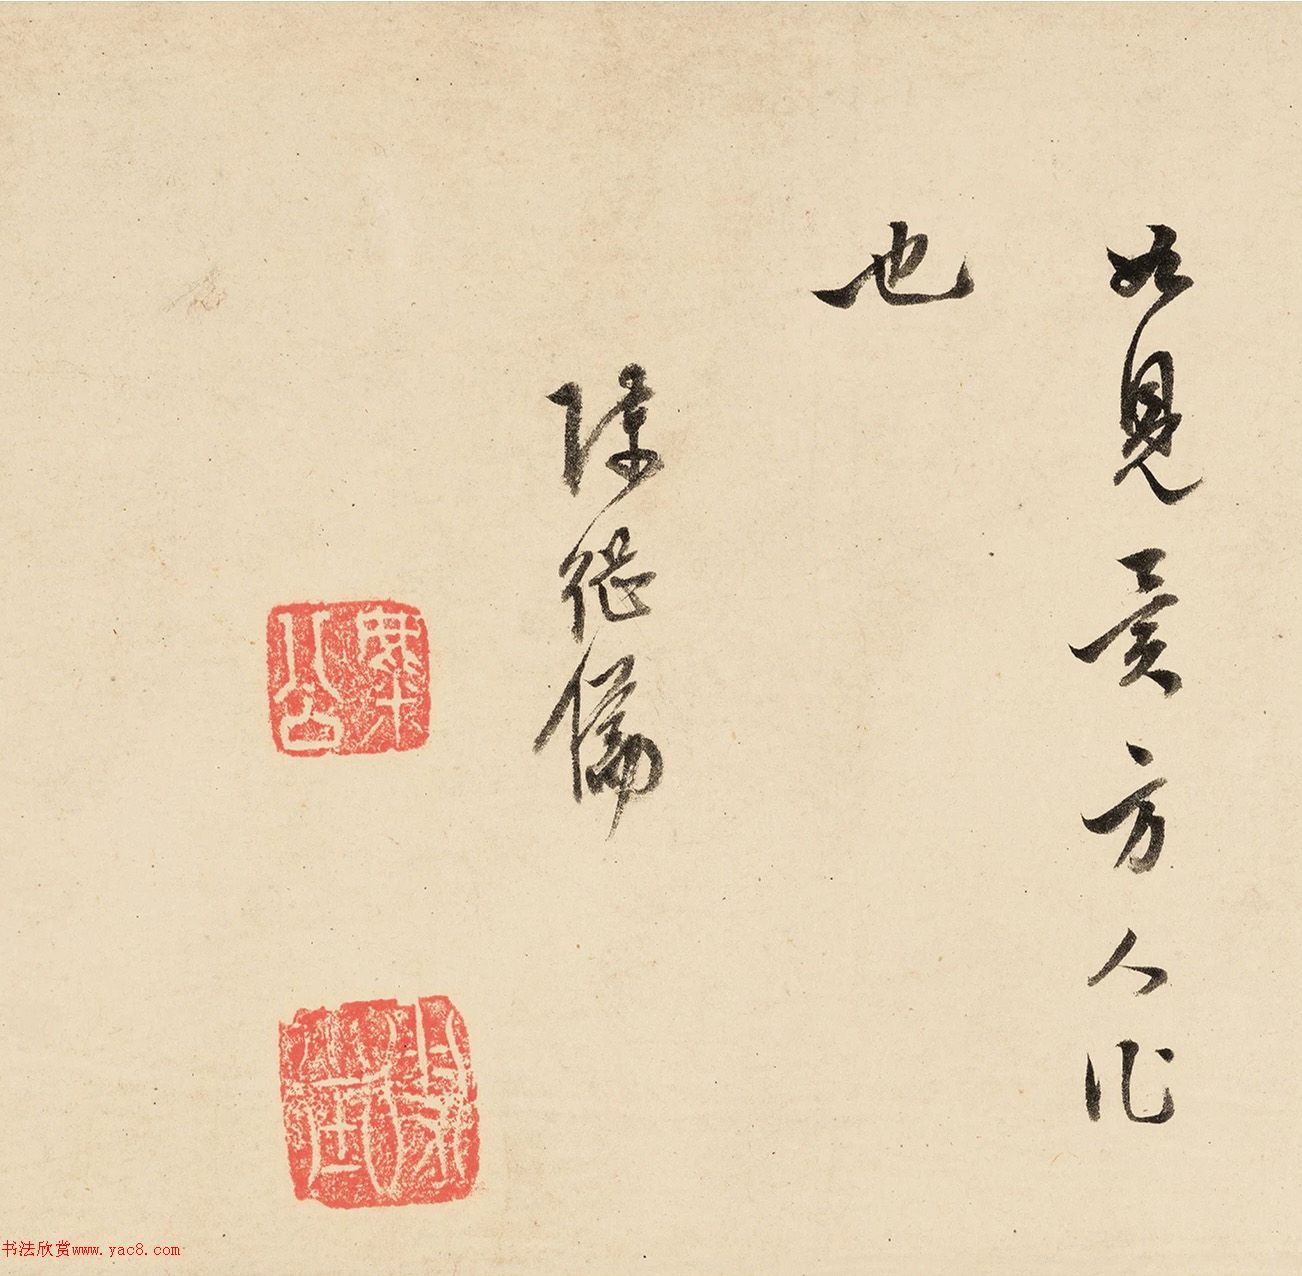 如見方人作
也
陳継儒
麋公
书法欣赏www.yac8.com